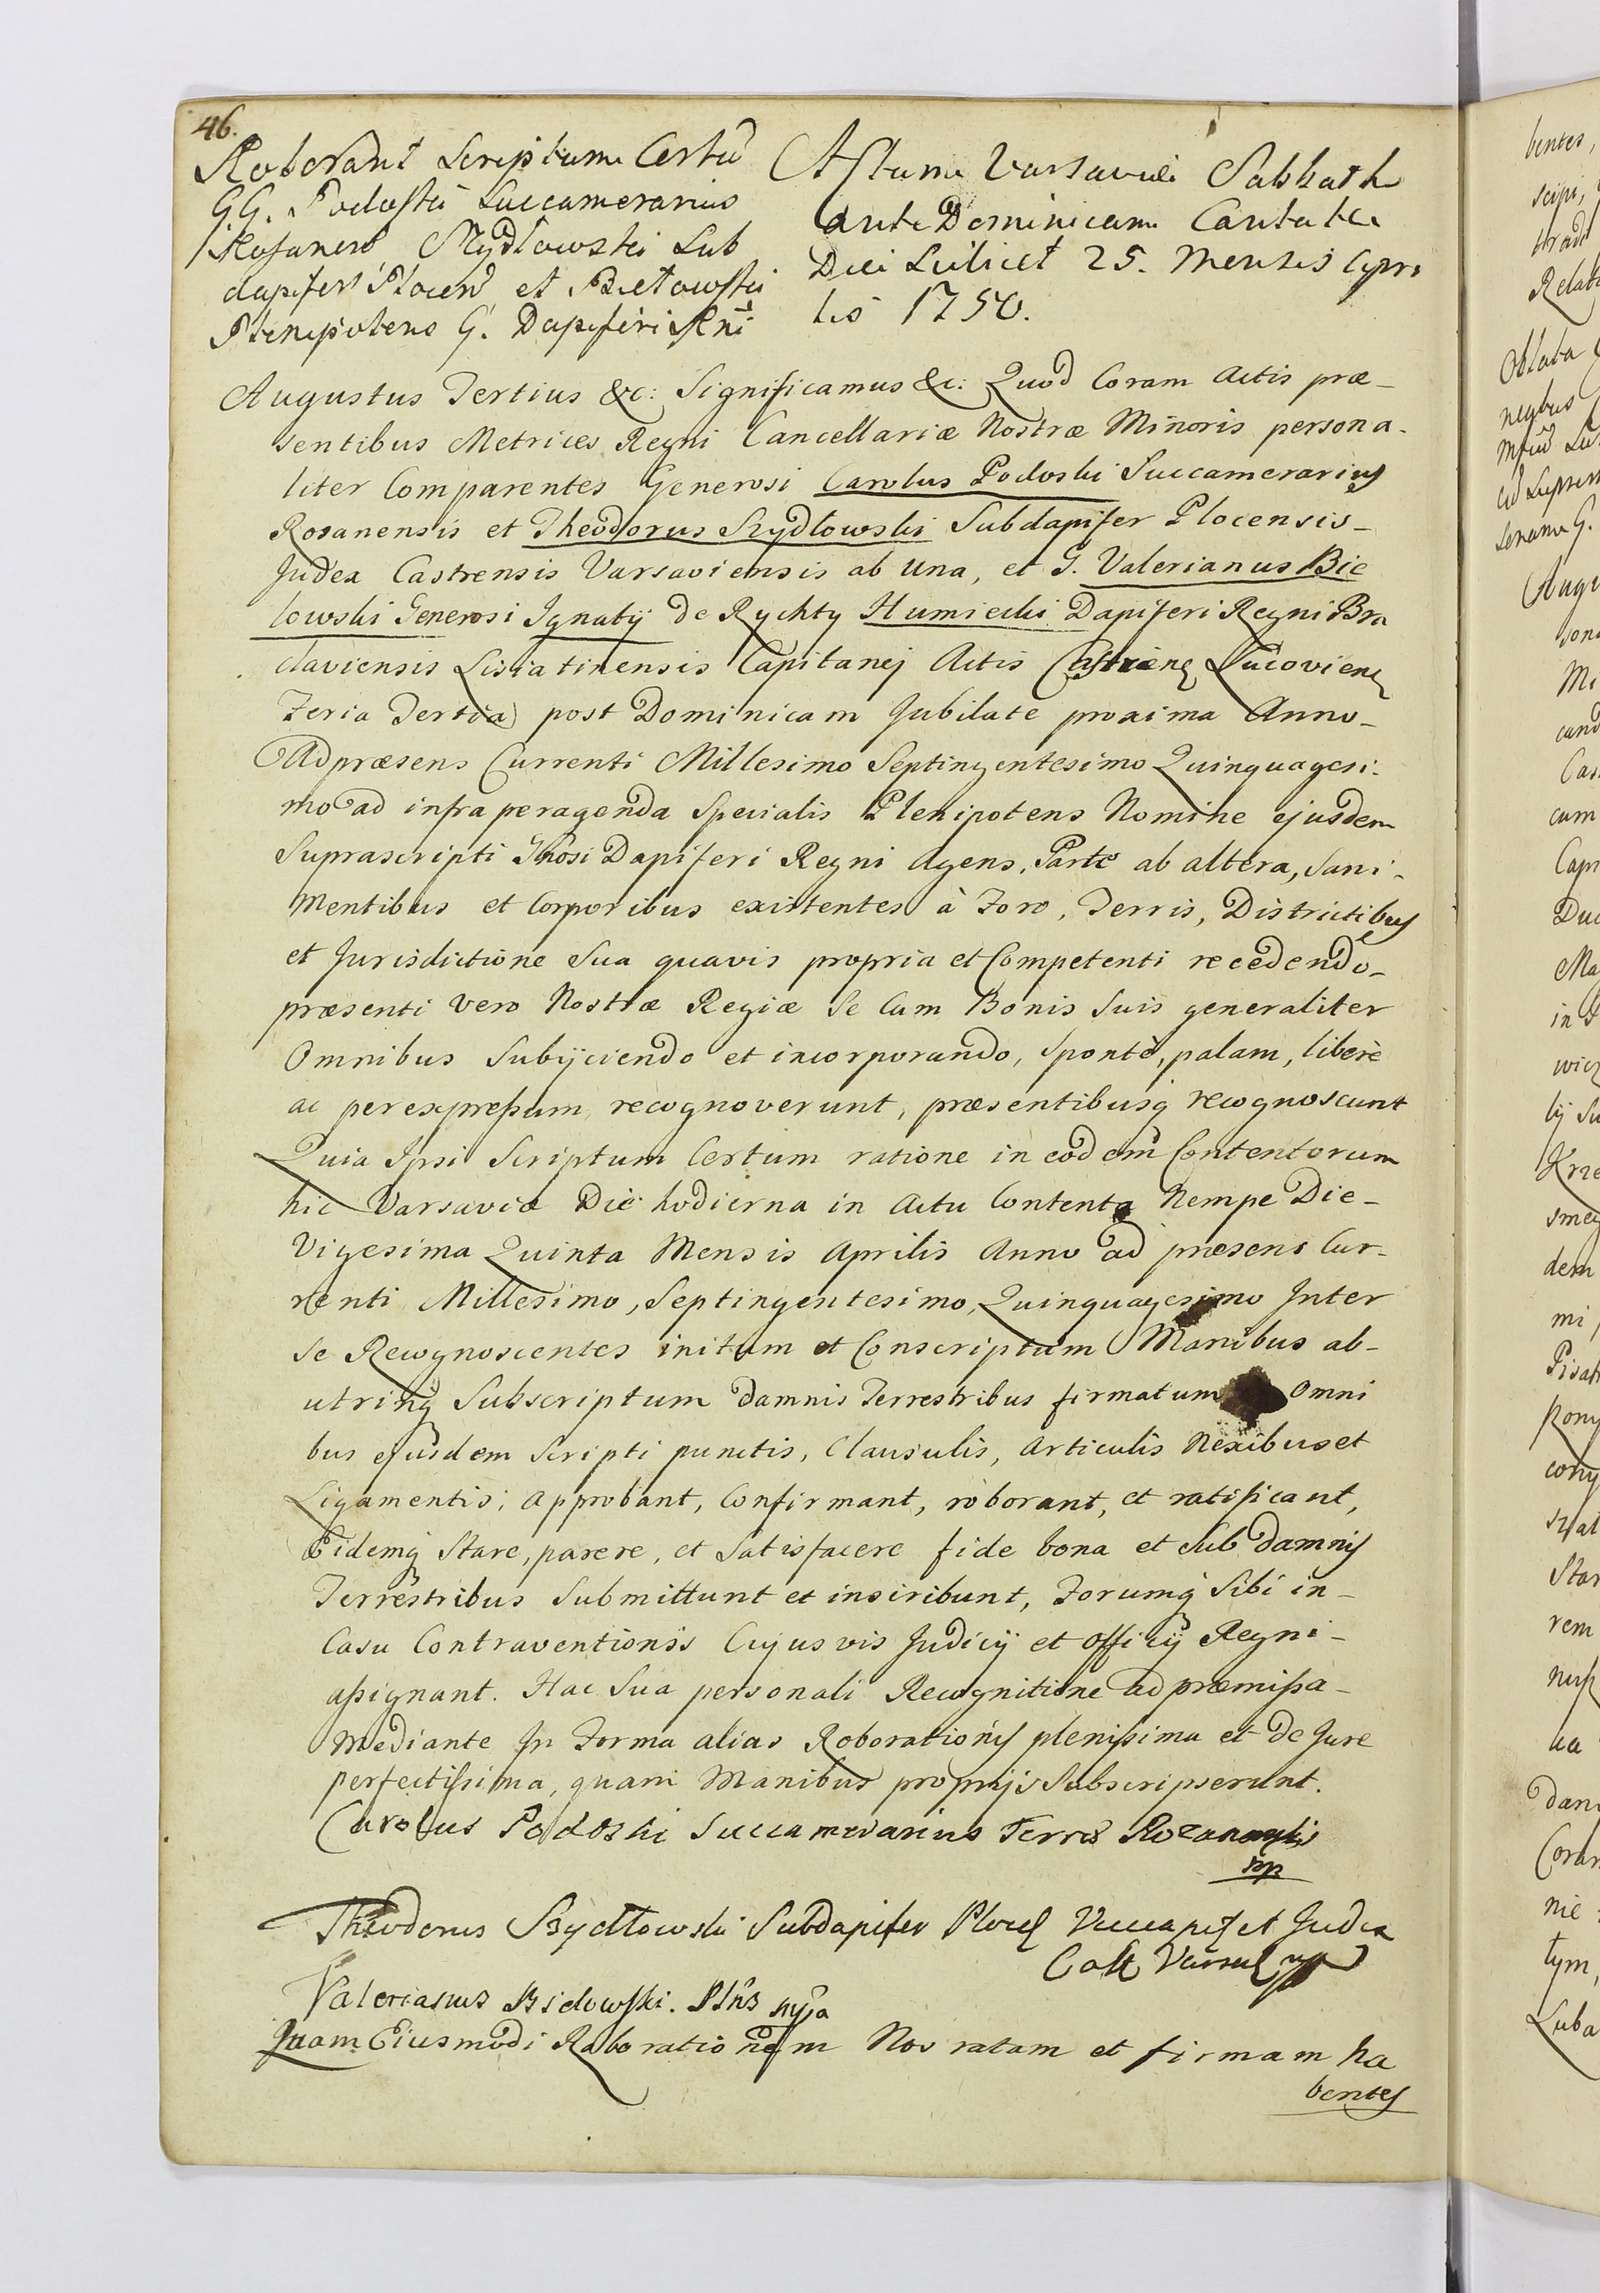 46.
Roborant Scriptum Certū
G.G. Podoski Succamerarius
Rosanens Szydłowski Sub
dapifer Plocen̄ et Bielowski
Plenipotens G. Dapiferi Rni
Actum Varsaviæ Sabbatho
ante Dominicam Cantate
Die Scilicet 25. Mensis Apri
lis 1750.
Augustus Tertius &c: Significamus &c: Quod Coram Actis præ-
sentibus Metrices Regni Cancellariæ Nostræ Minoris persona-
liter Comparentes Generosi Carolus Podoski Succamerarius
Rosanensis et Theodorus Szydłowski Subdapifer Plocensis-
Judex Castrensis Varsaviensis ab Una, et G. Valerianus Bie
lowski Generosi Ignatij de Rychty Humiecki Dapiferi Regni Bra
claviensis Lisiatinensis Capitanej Actis Castrens Lucoviens
Feria Tertia post Dominicam Jubilate proxima Anno-
Adpræsens Currenti Millesimo Septingentesimo Quinquagesi-
mo ad infra peragenda Specialis Plenipotens Nomine ejusdem
Suprascripti Gnosi Dapiferi Regni Agens, Parte ab altera, Sani-
Mentibus et Corporibus existentes à Foro, Terris, Districtibus
et Jurisdictione Sua quavis propria et Competenti recedendo-
præsenti vero Nostræ Regiæ Se Cum Bonis Suis generaliter
Omnibus Subijciendo et incorporando, Spontè, palam, liberè
ac per expreßum recognoverunt, præsentibusq recognoscunt
Quia Ipsi Scriptum Certum ratione in eodem Contentorum
hic Varsaviæ Die hodierna in Actu Contenta Nempe Die-
Vigesima Quinta Mensis Aprilis Anno ad præsens Cur-
renti Millesimo, Septingentesimo, Quinquagesimo Inter
Se Recognoscentes initum et Conscriptum Manibus ab-
utrinq Subscriptum damnis Terrestribus firmatum Omni
bus ejusdem Scripti punctis, Clausulis, Articulis Nexibus et
Ligamentis; Approbant, Confirmant, roborant, et ratificant,
Eidemq Stare, parere, et Satisfacere fide bona et Sub damnis
Terrestribus Submittunt et inscribunt, Forumq Sibi in-
Casu Contraventionis Cujusvis Judicij et Officij Regni-
aßignant. Hac Sua personali Recognitione ad præmißa-
Mediante In Forma alias Roborationis pleniſsima et de Jure
perfectiſsima, quam Manibus proprijs Subscripserunt.
Carolus Podoski Succamerarius Terræ Rozanensis
mp
Theodorus Szydłowski Subdapifer Plocen et Judex
Cast Varsav mp
Valerianus Bielowski. Plns mpa
Quam Eiusmodi Roborationem Nos ratam et firmam ha
bentes
bentes,
Relat
Oblata